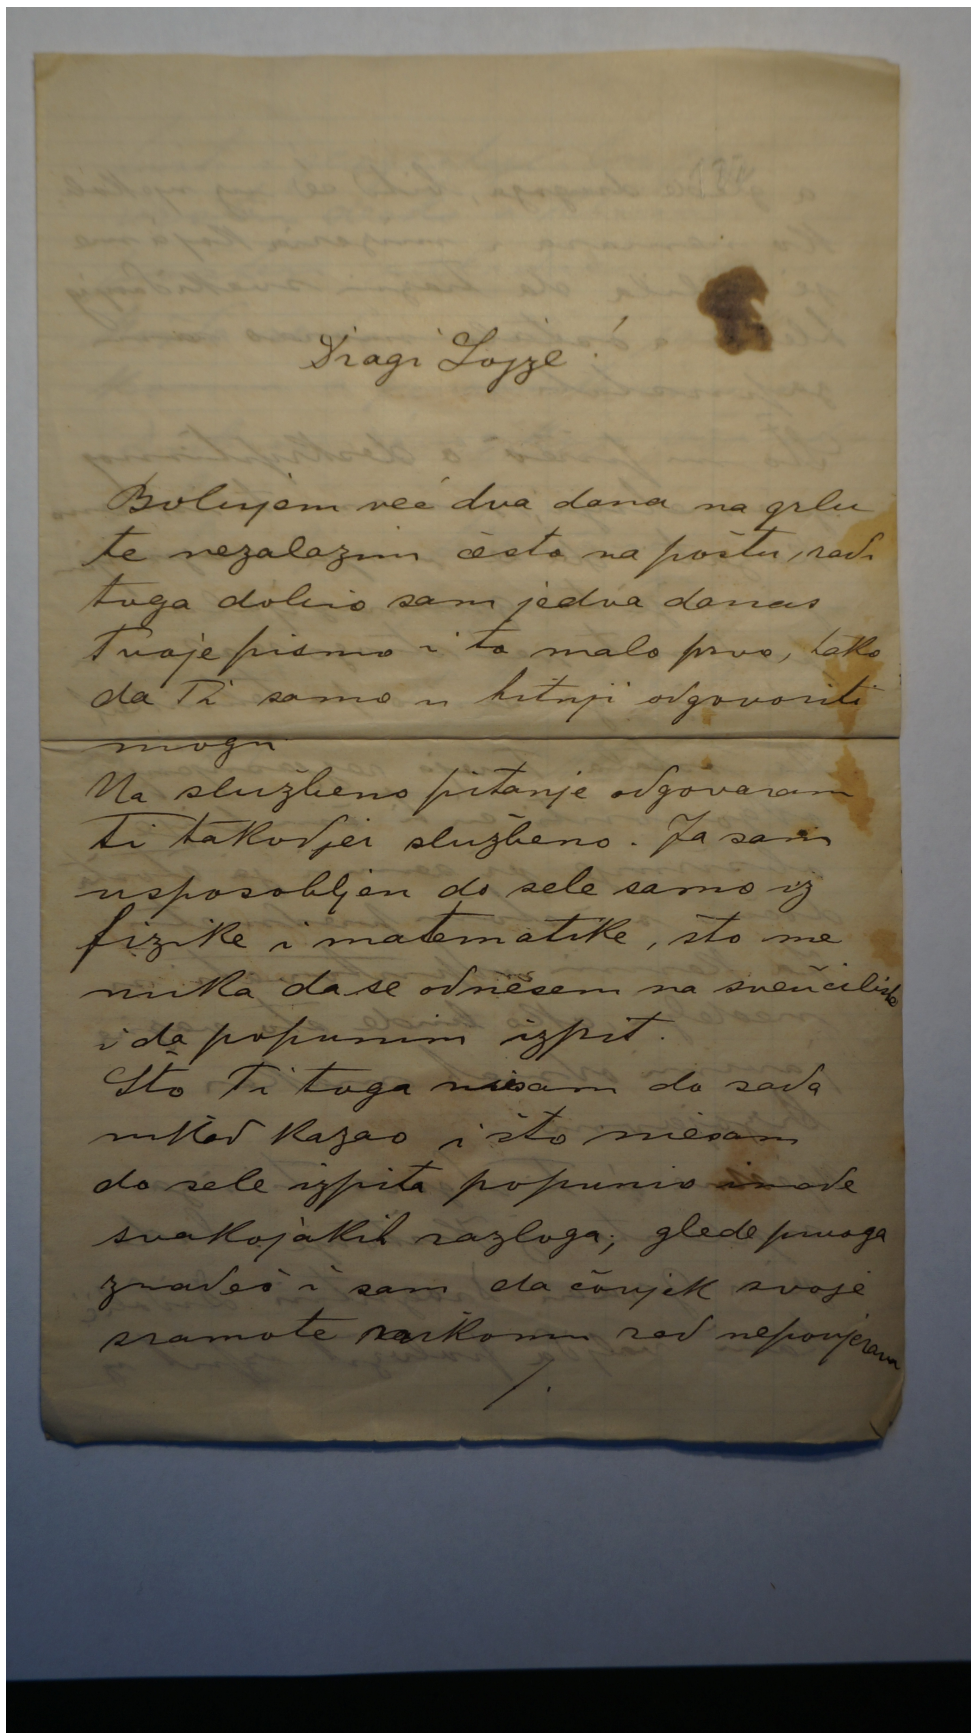 Dragi Lojze!
Bolujem već dva dana na grlu
te nezalazim često na poštu, radi
toga dobio sam jedva danas
Tvoje pismo i to malo prvo, tako
da Ti samo u hitnji odgovoriti
mogu
Na službeno pitanje odgovaram
Ti takodjer službeno. Ja sam
usposobljen do sele samo iz
fizike i matematike, što me
nuka da se odnesem na sveučilište
i da popunim izpit.
Što Ti toga niesam do sada
nikad kazao i što niesam
do sele izpita popunio imade
svakojakih razloga; glede prvoga
znadeš i sam da čovjek svoje
sramote nikomu rad nepovjerava
/.